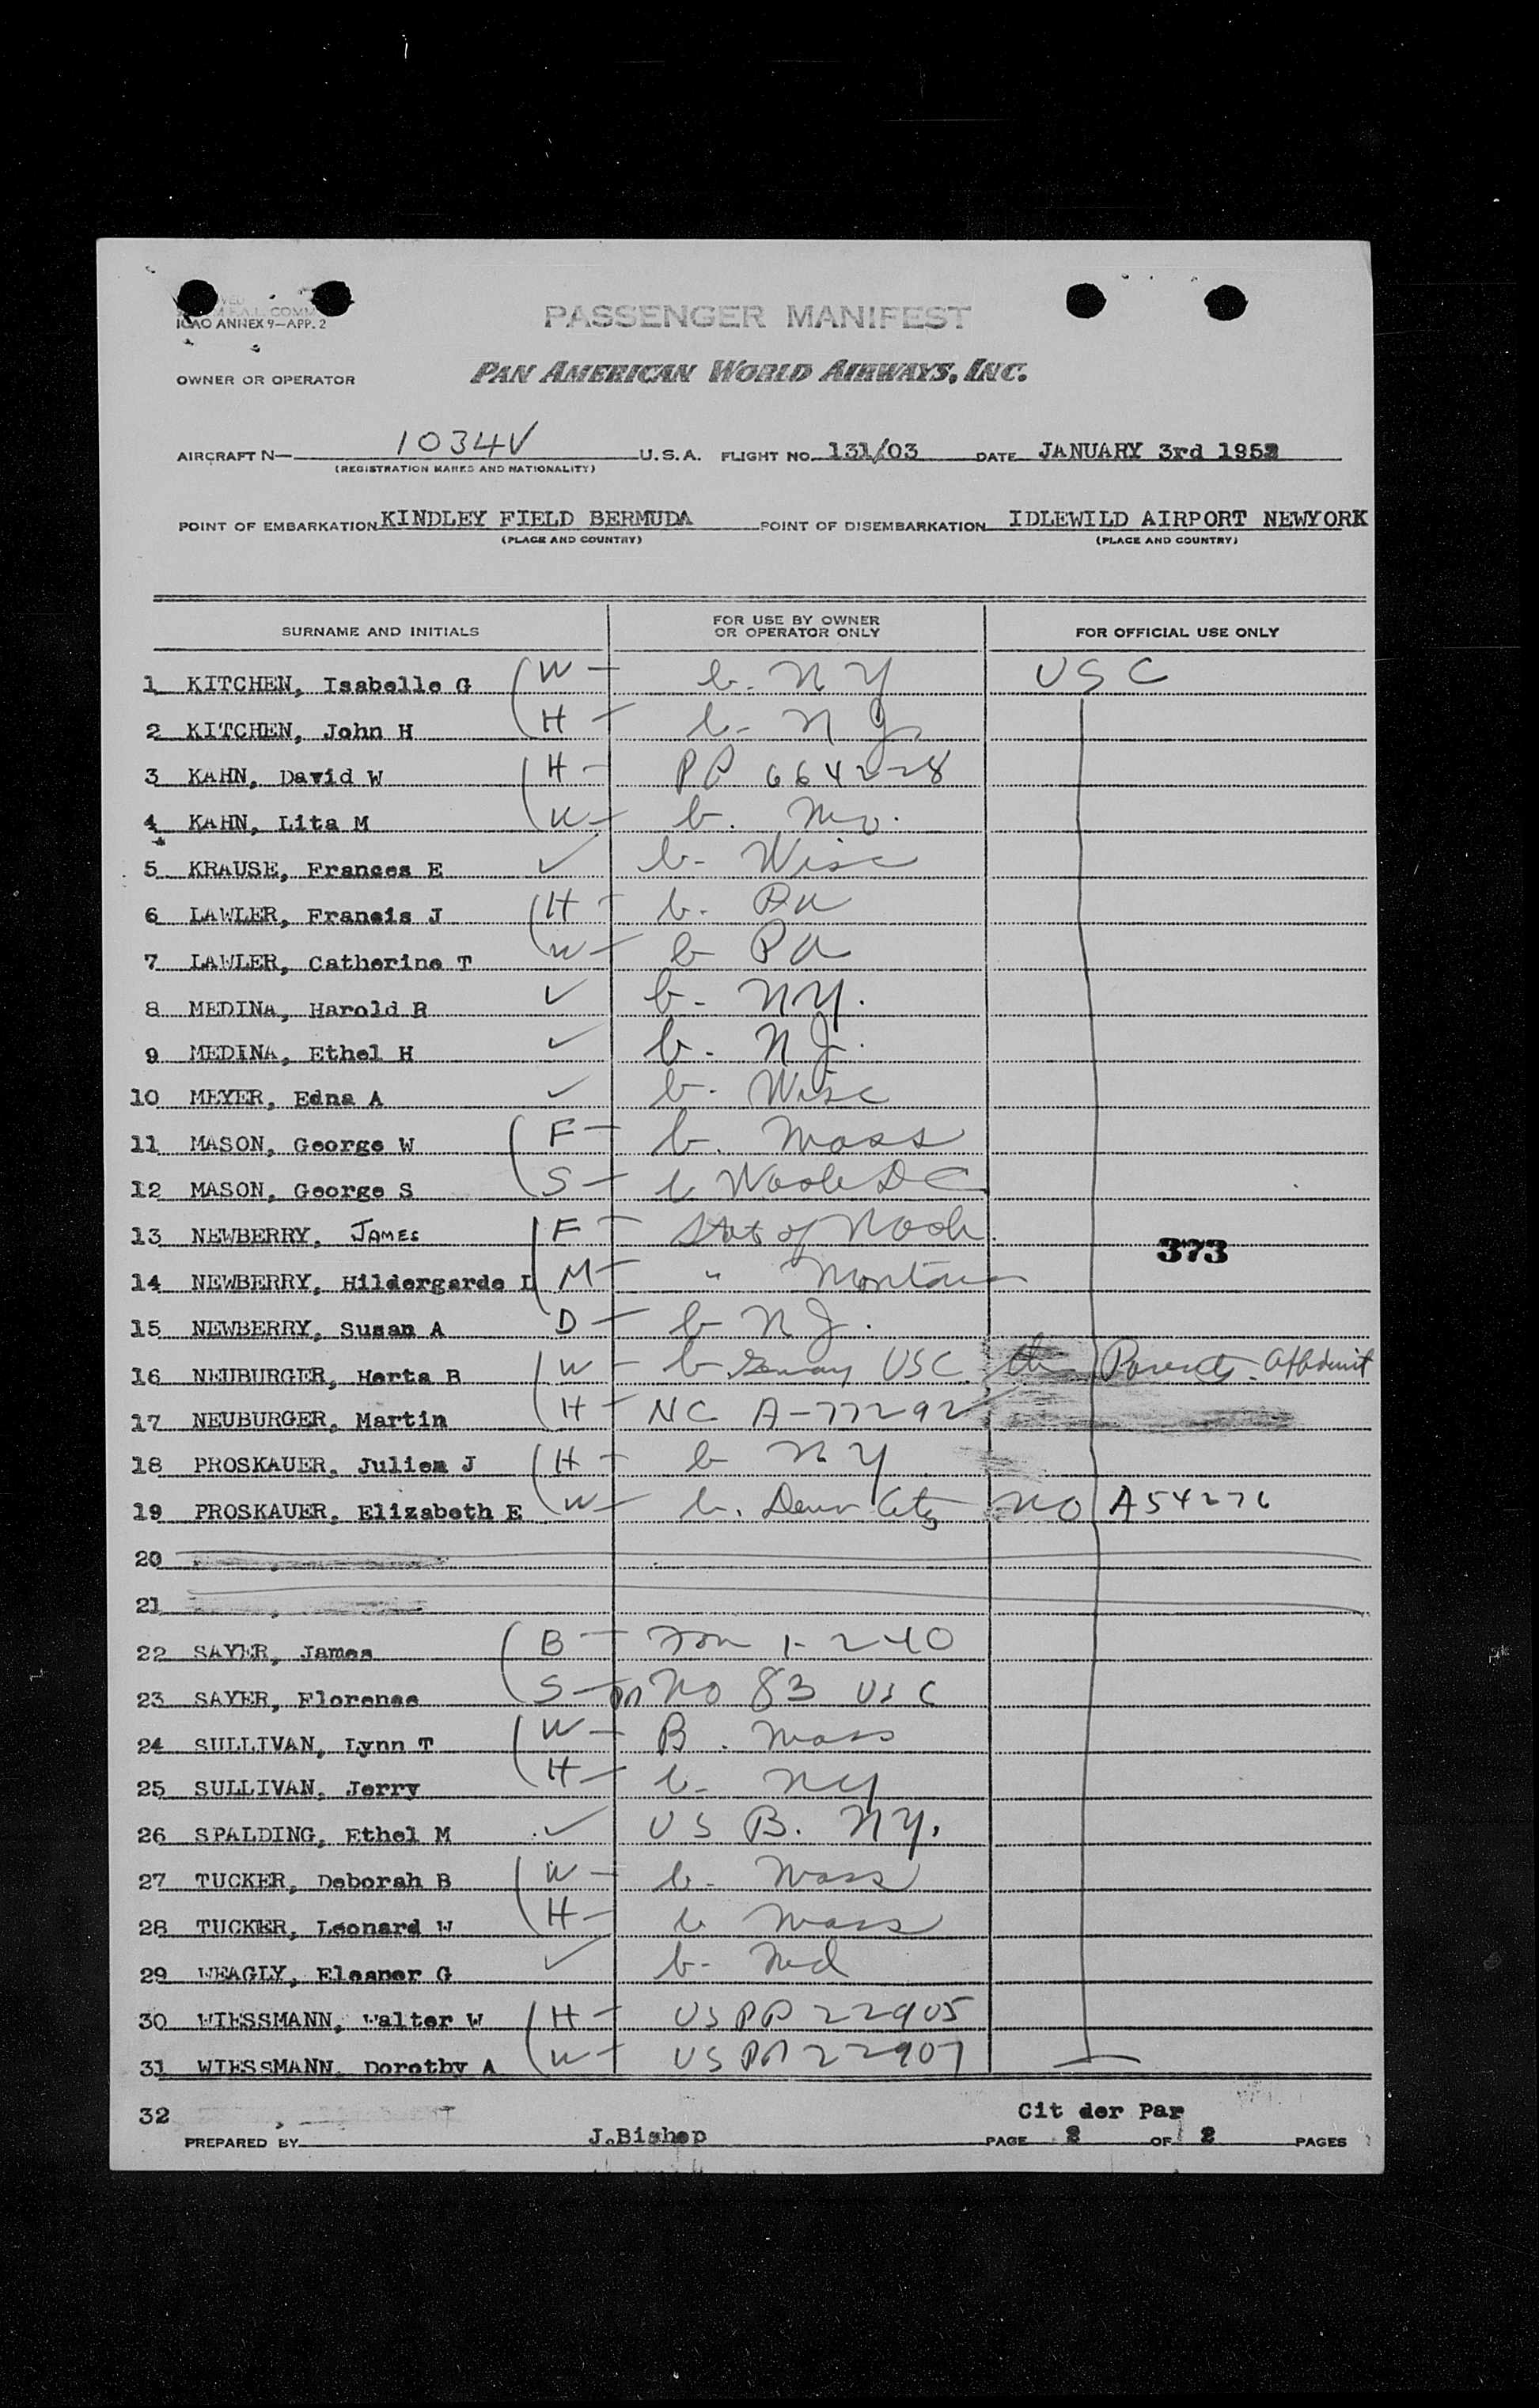 PASSENGER MANIFEST
ICAO ANNEX 9—APP. 2
OWNER OR OPERATOR PAN AMERICAN WORLD AIRWAYS, INC.
AIRCRAFT N— 1034V U.S.A. FLIGHT NO. 131/03 DATE JANUARY 3rd 1952
(REGISTRATION MARKS AND NATIONALITY)
POINT OF EMBARKATION KINDLEY FIELD BERMUDA POINT OF DISEMBARKATION IDLEWILD AIRPORT NEWYORK
(PLACE AND COUNTRY) (PLACE AND COUNTRY)
SURNAME AND INITIALS FOR USE BY OWNER OR OPERATOR ONLY FOR OFFICIAL USE ONLY
1 KITCHEN, Isabelle G W — b. NY USC
2 KITCHEN, John H H — b- NJ
3 KAHN, David W H — PP 664228
4 KAHN, Lita M W — b. Mo.
5 KRAUSE, Frances E ✓ b- Wisc
6 LAWLER, Francis J H — b- Pa
7 LAWLER, Catherine T W — b Pa
8 MEDINA, Harold R ✓ b- NY.
9 MEDINA, Ethel H ✓ b. NJ.
10 MEYER, Edna A ✓ b- Wisc
11 MASON, George W F — b. Mass
12 MASON, George S S — b Wash DC
13 NEWBERRY, JAMES F — Stat of Wash
373
14 NEWBERRY, Hildergarde L M — " Montana
15 NEWBERRY, Susan A D — b NJ.
16 NEUBURGER, Herta B W — b Germany USC thru Parents - affidavit
17 NEUBURGER, Martin H — NC A-77292
18 PROSKAUER, Julien J H — b NY
19 PROSKAUER, Elizabeth E W — b. City No A54276
20
21
22 SAYER, James B — 1-240
23 SAYER, Florence S — No 83 USC
24 SULLIVAN, Lynn T W — B. Mass
25 SULLIVAN, Jerry H — b- NY
26 SPALDING, Ethel M ✓ US B. NY.
27 TUCKER, Deborah B W — b- Mass
28 TUCKER, Leonard W H — b Mass
29 WEAGLY, Eleanor G ✓ b- Md
30 WIESSMANN, Walter W H — US PP 22905
31 WIESSMANN, Dorothy A W — US PP 22907
32 Cit der Par
PREPARED BY J.Bishop PAGE 2 OF 2 PAGES